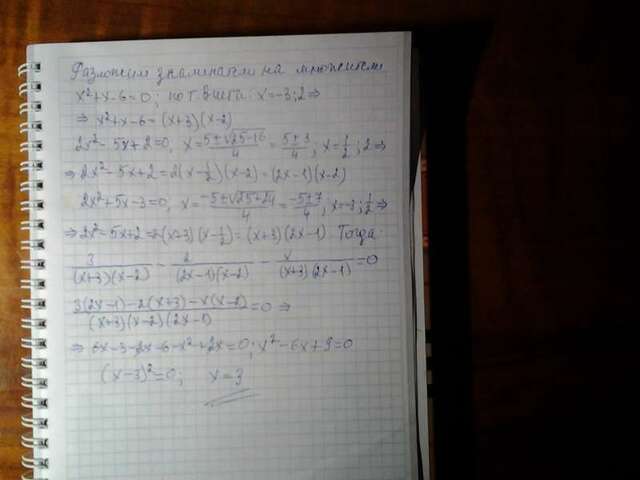 Разложим знаменатели на множители
x²+x-6=0; по т. Виета: x=-3; 2 ⇒
⇒ x²+x-6=(x+3)(x-2)
2x²-5x+2=0, x=(5±√(25-16))/4=(5±3)/4; x=1/2; 2 ⇒
⇒ 2x²-5x+2=2(x-1/2)(x-2)=(2x-1)(x-2)
2x²+5x-3=0, x=(-5±√(25+24))/4=(-5±7)/4, x=-3; 1/2 ⇒
⇒ 2x²-5x+2=2(x+3)(x-1/2)=(x+3)(2x-1) Тогда:
3/((x+3)(x-2)) - 2/((2x-1)(x-2)) - x/((x+3)(2x-1))=0
(3(2x-1)-2(x+3)-x(x-2))/((x+3)(x-2)(2x-1))=0 ⇒
⇒ 6x-3-2x-6-x²+2x=0; x²-6x+9=0
(x-3)²=0; x=3